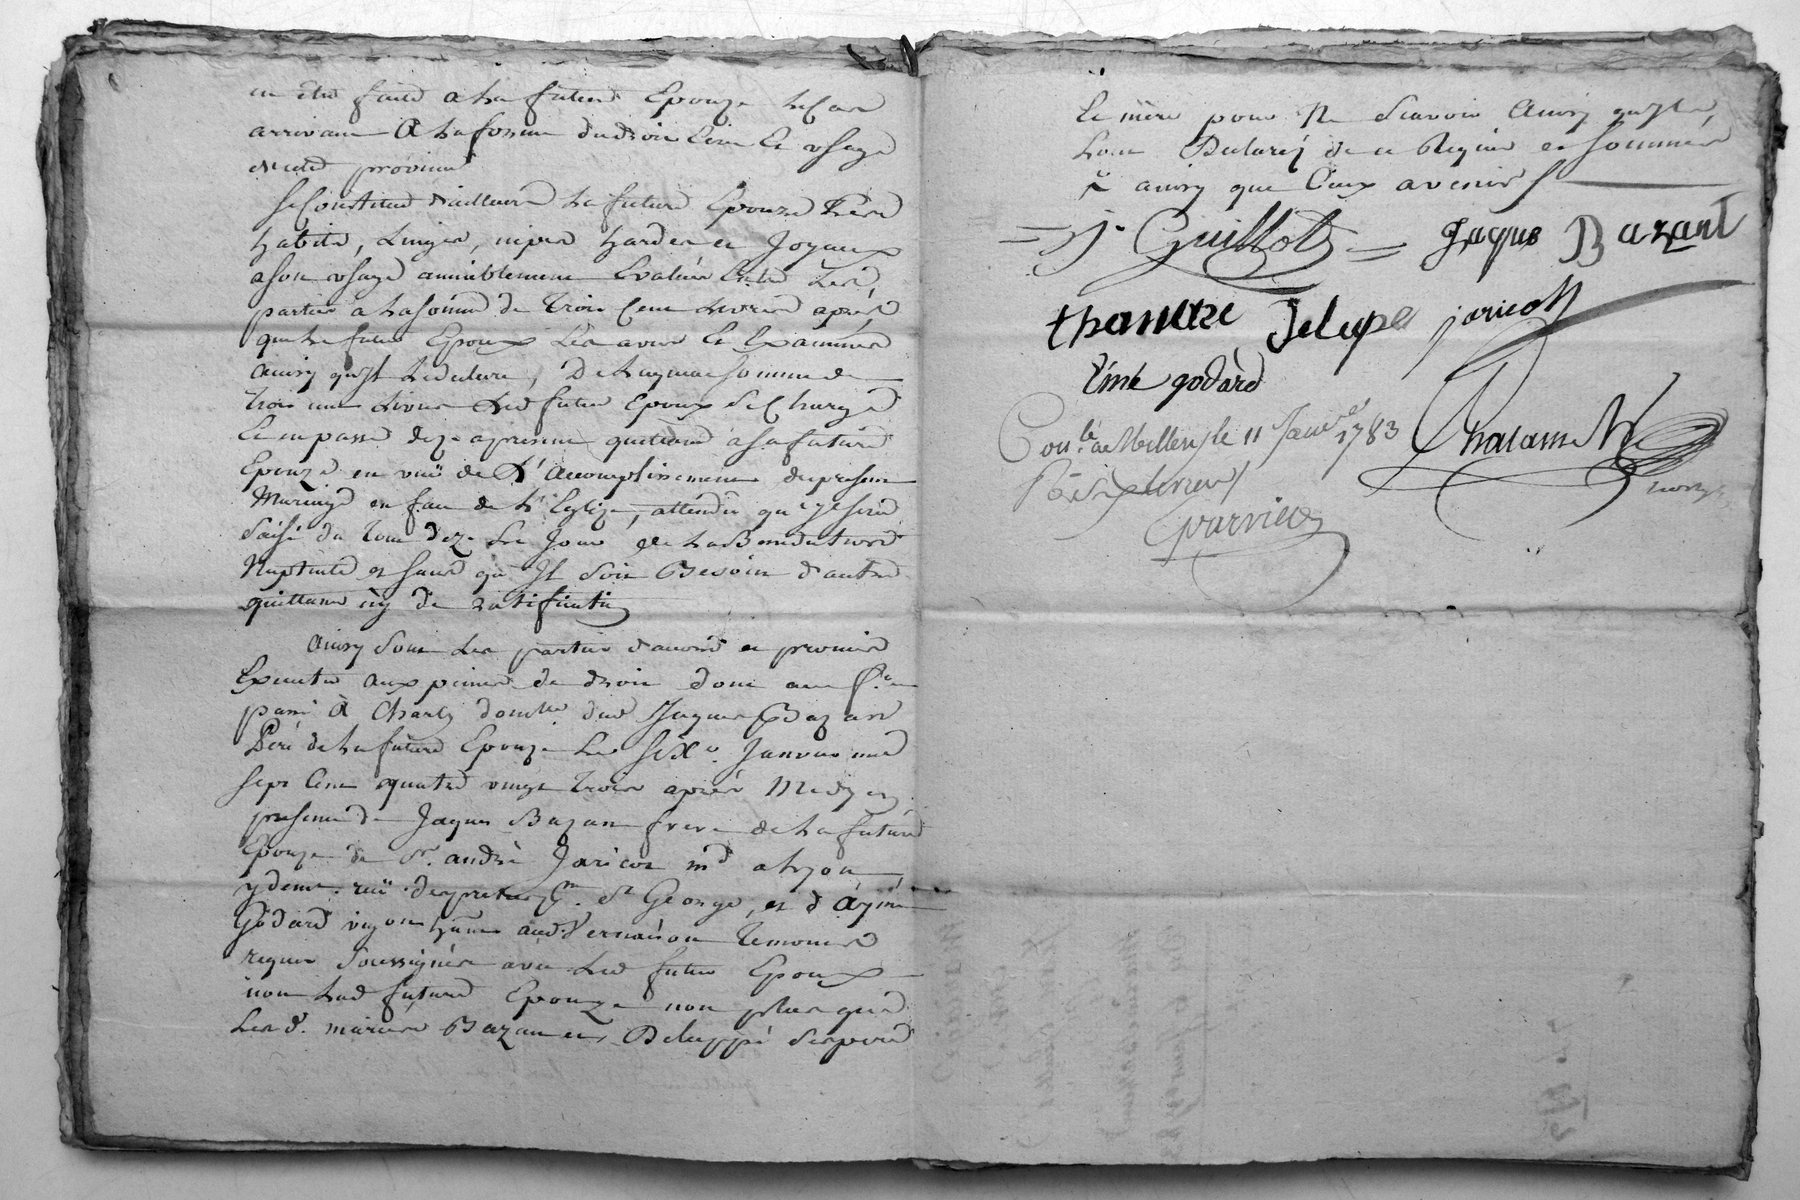 en etre faite a la future Epouze le Cas
arrivant a la forme du droit Ecrit Et usage
de cette province
Se Constitue d'ailleurs La future Epouze Ses
habits, Linges, nipes hardes et Joyaux
a son usage amiablement Evalués Entre Les
parties a La somme de trois Cent Livres après
que Le futur Epoux Les a vus Et Examinés
ainsy qu'il Le declare, De Laquelle somme de
trois cent Livres Led futur Epoux Se Charge
Et en passe dez a present quittance a sa future
Epouze en vuë de L'accomplissement du present
Mariage en face de L'Eglize, attendu qu'il sera
Saisi du tout dez Le Jour de La Benediction
Nuptiale et sans qu'Il soit Besoin d'autre
quittance ny de ratification
ainsy sont Les parties d'accord et promis
Executer aux peines de droit dont acte
passé à Charly domlle. dud Jaques Bazan
Peré de La future Epouze Le Six e. Janvier mil
sept Cent quatre vingt trois après Midy en
presence de Jaques Bazan frere de La future
Epouze de Sr. andré Jaricot md a Lyon
y demt. ruë St George, et d'Aymé
Godard vigneron aud Vernaison temoins
requis Soussignés avec Led futur Epoux
non Lad future Epouze non plus que
Les d. mariés Bazan et Deluppé Ses pere
Et mère pour Ne Scavoir Ainsy qu'ils
L'ont Declaré de ce Requis et sommés
= J. Guillot = Jaques Bazant
thanitre Delupe jaricot
Emé godard
Conlé a Millery le 11 Janvier 1783
Parvieux
Chatanet